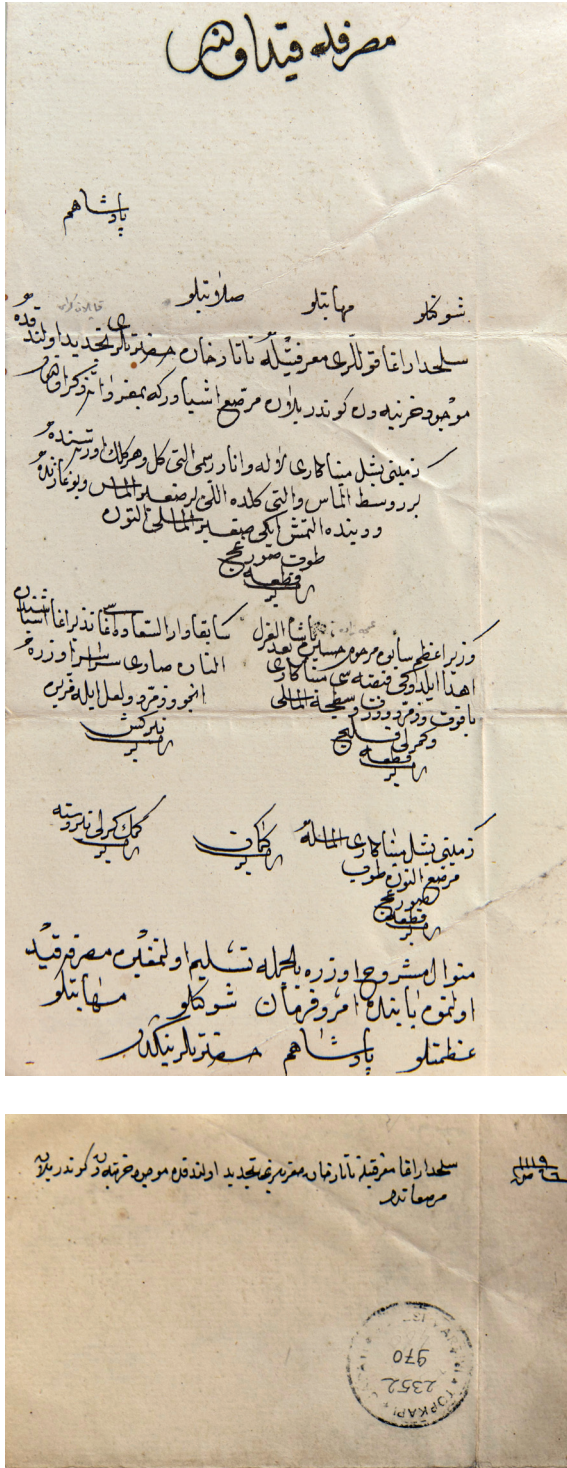 مصرفه قيد اولنه
پادشاهم
شوكتلو مهابتلو صلابتلو
سلحدار اغا قوللرى معرفتيله تاتار خان حضرتلرى تجديد اولندقده
موجود خزينه دن كوندريلان مرصع اشيادر كه بمفردات ذكر اولنور
زمينى يشل مينا كارى لاله و انار رسمى التى كل و هر كلك اورته سنده
برر وسط الماس والتى كلده اللى بر صغير الماس و بوغازنده
و ديبنده التمش ايكى صغير الماسلى التون
طوب صورغج
قطعه
وزير اعظم سابق مرحوم حسين پاشا بعد العزل
اهدا ايلدوكى قبضه سى مينا كارى
ياقوت و زمرد و ورق و سطحيه الماسلى
و كمرلى قليج
قطعه
سابقا دار السعاده اغاسى نذير اغا اشياسندن
النان صارى سراسر اوزره
انجو و زمرد و لعل ايله مزين
تيركش
زمينى يشل مينا كارى الماسله
مرصع التون طوب
صورغج
قطعه
كمان
كمك كزلى تير دسته
منوال مشروح اوزره بالجمله تسليم اولنمغين مصرفه قيد
اولنمق بابنده امر و فرمان شوكتلو مهابتلو
عظمتلو پادشاهم حضرتلرينكدر
سلحدار اغا معرفتيله تاتار خان حضرتلرى تجديد اولندقده موجود خزينه دن كوندريلان
مرصعاتدر
١١١٩
TOPKAPI
2352
970